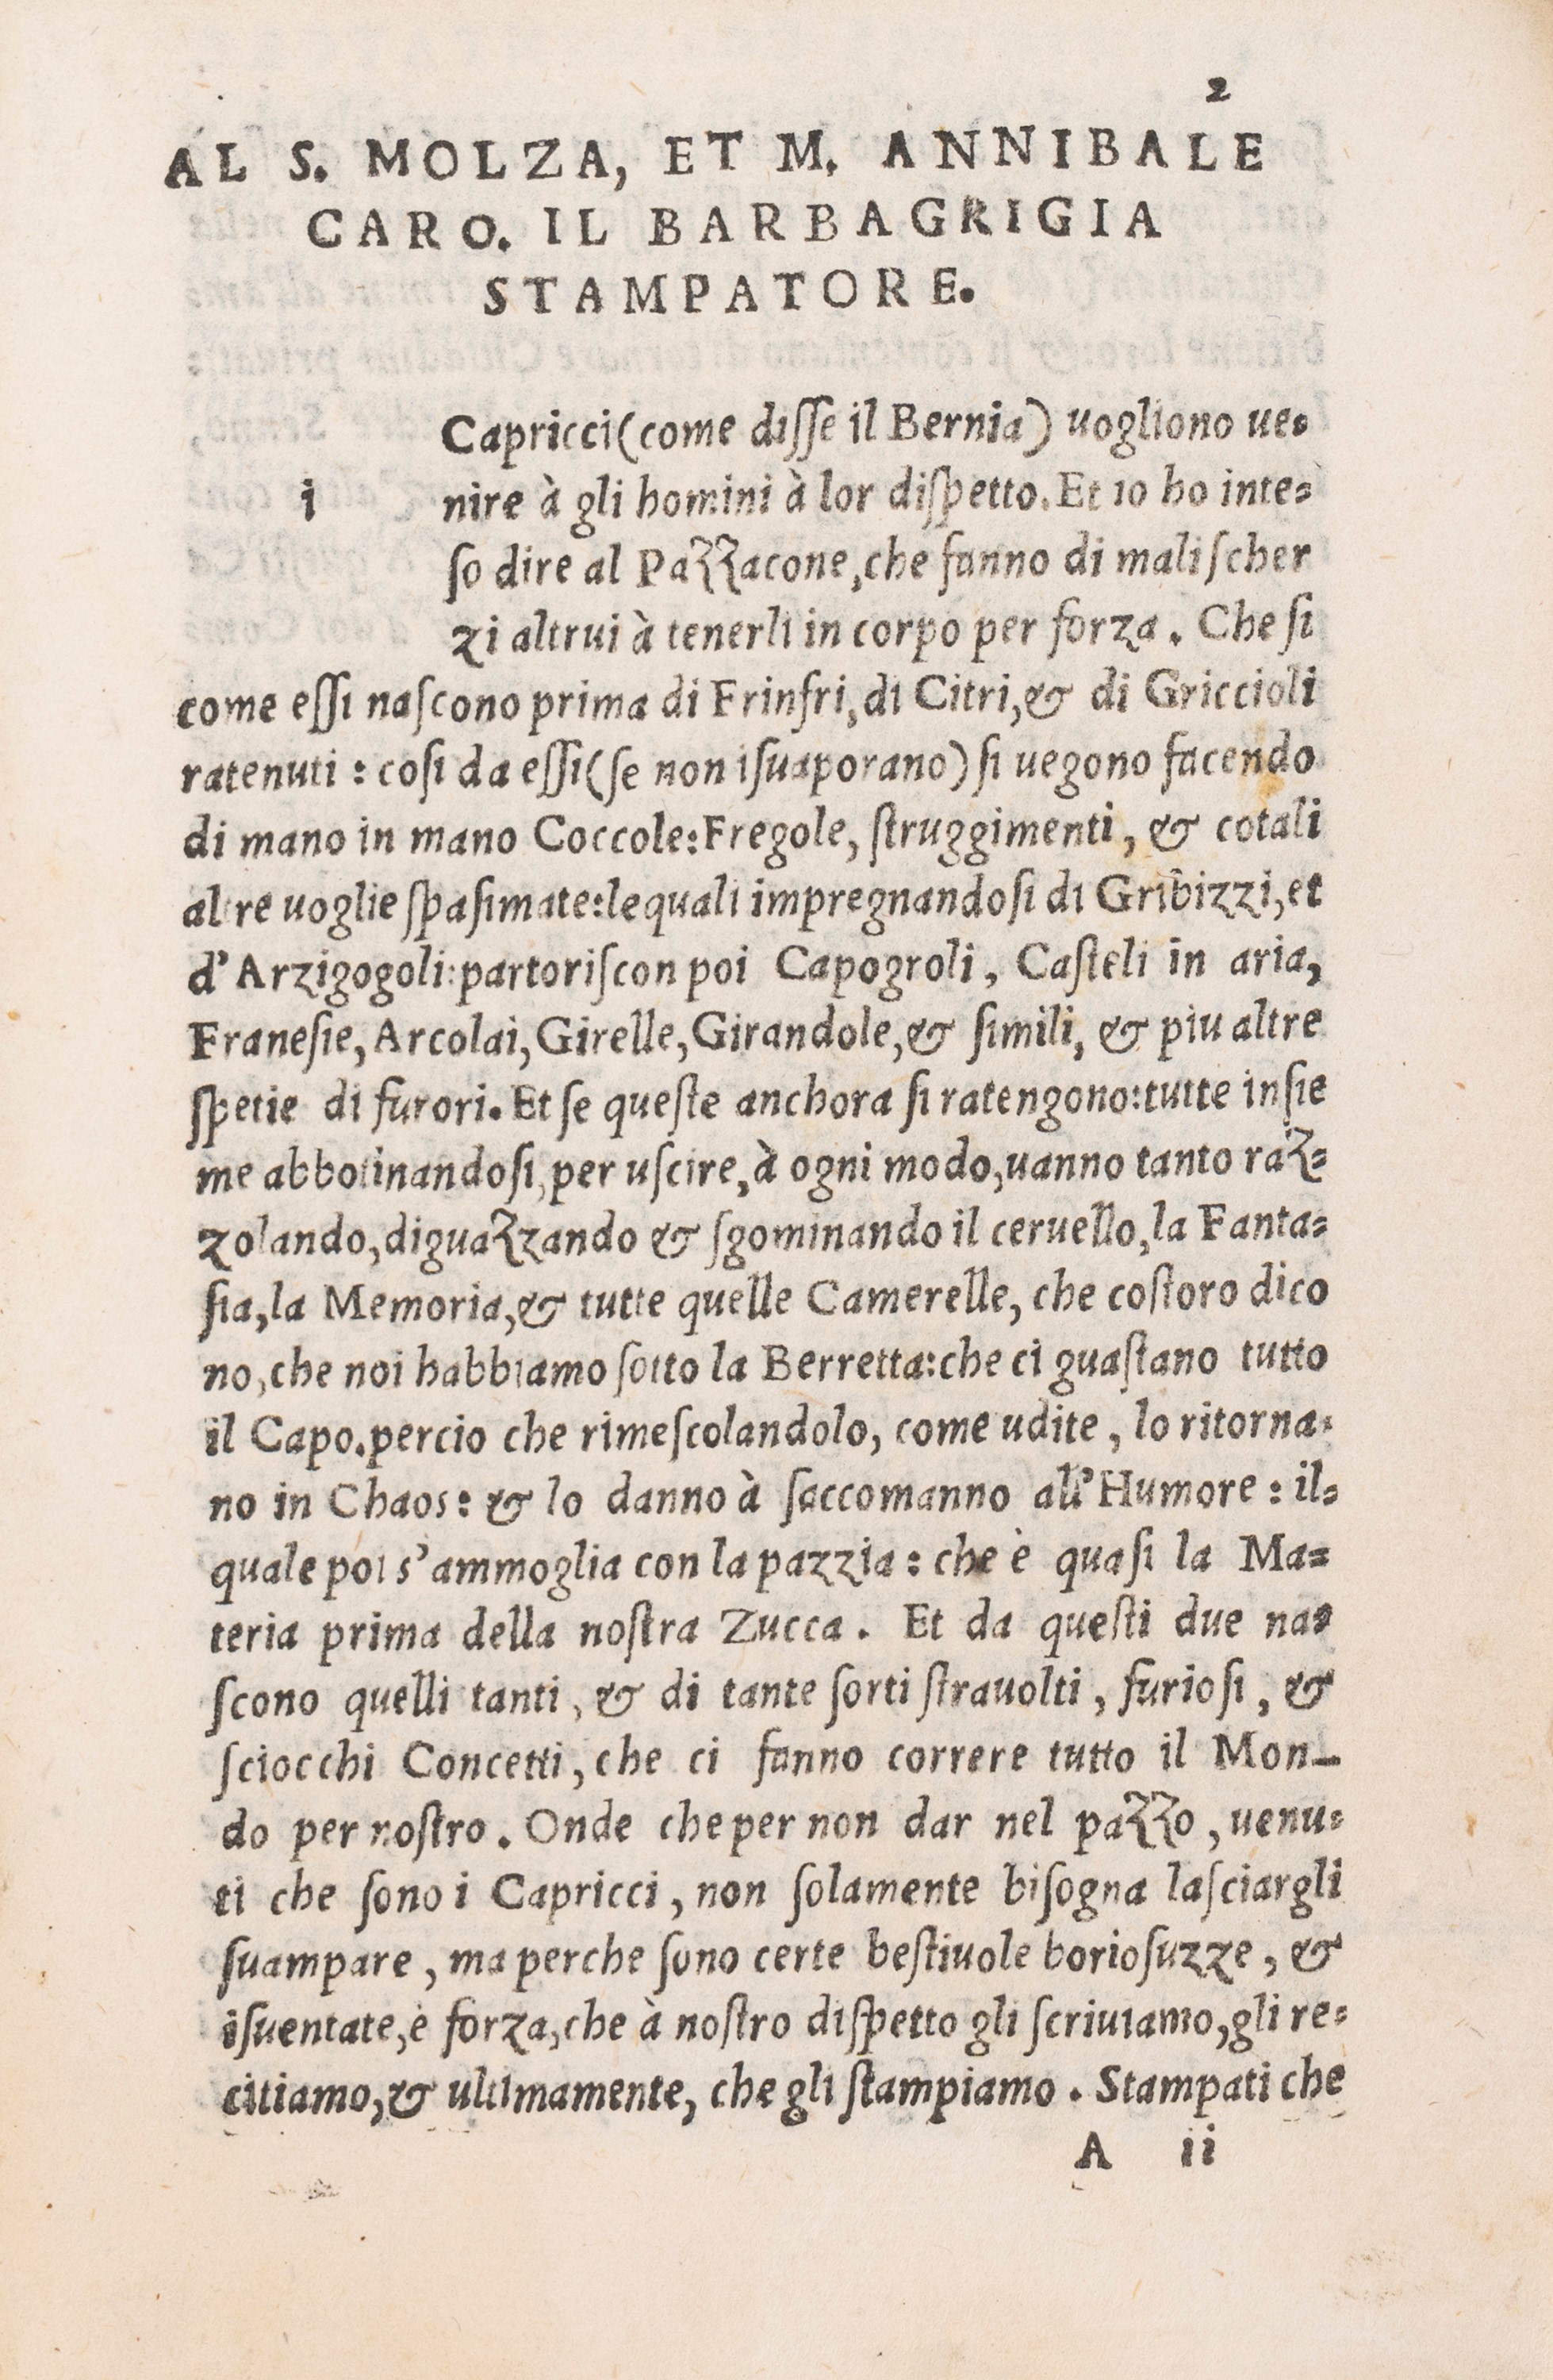 2
AL S. MOLZA, ET M. ANNIBALE
CARO. IL BARBAGRIGIA
STAMPATORE.
Capricci (come disse il Bernia) uogliono ue-
i nire à gli homini à lor dispetto. Et io ho inte-
so dire al Pazzacone, che fanno di mali scher
zi altrui à tenerli in corpo per forza. Che si
come essi nascono prima di Frinfri, di Citri, & di Griccioli
ratenuti: cosi da essi (se non isuaporano) si uegono facendo
di mano in mano Coccole: Fregole, struggimenti, & cotali
altre uoglie spasimate: lequali impregnandosi di Gribizzi, et
d'Arzigogoli: partoriscon poi Capogroli, Casteli in aria,
Franesie, Arcolai, Girelle, Girandole, & simili, & piu altre
spetie di furori. Et se queste anchora si ratengono: tutte insie
me abbotinandosi, per uscire, à ogni modo, uanno tanto raz-
zolando, diguazzando & sgominando il ceruello, la Fanta-
sia, la Memoria, & tutte quelle Camerelle, che costoro dico
no, che noi habbiamo sotto la Berretta: che ci guastano tutto
il Capo. percio che rimescolandolo, come udite, lo ritorna-
no in Chaos: & lo danno à saccomanno all'Humore: il-
quale poi s'ammoglia con la pazzia: che è quasi la Ma-
teria prima della nostra Zucca. Et da questi due na-
scono quelli tanti, & di tante sorti strauolti, furiosi, &
sciocchi Concetti, che ci fanno correre tutto il Mon-
do per nostro. Onde che per non dar nel pazzo, uenu-
ti che sono i Capricci, non solamente bisogna lasciargli
suampare, ma perche sono certe bestiuole boriosuzze, &
isuentate, è forza, che à nostro dispetto gli scriuiamo, gli re-
citiamo, & ultimamente, che gli stampiamo. Stampati che
A ii